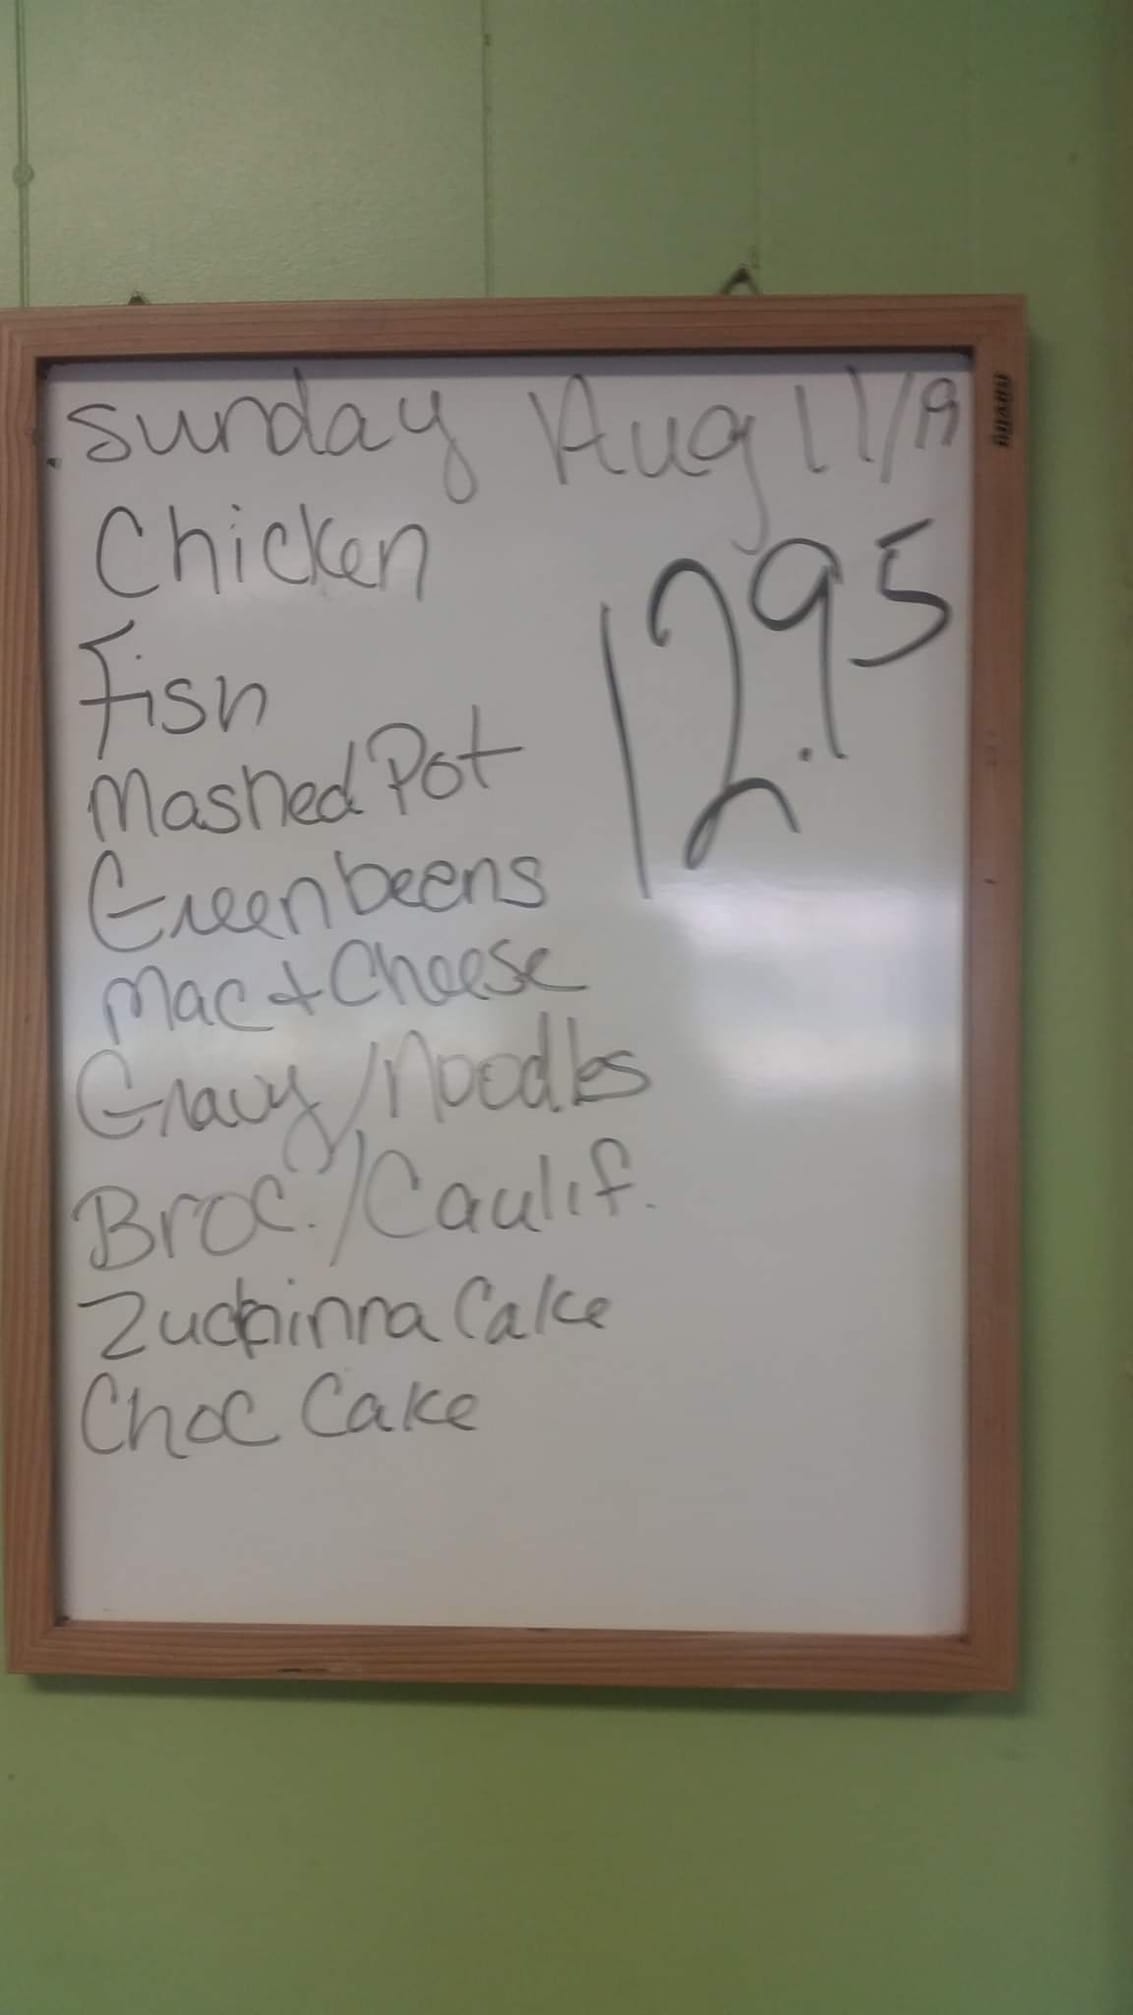 Sunday Aug 11/19
Chicken
12.95
Fish
Mashed Pot
Greenbeens
Mac + Cheese
Gravy/Noodles
Broc./Caulif.
Zuchinna Cake
Choc Cake